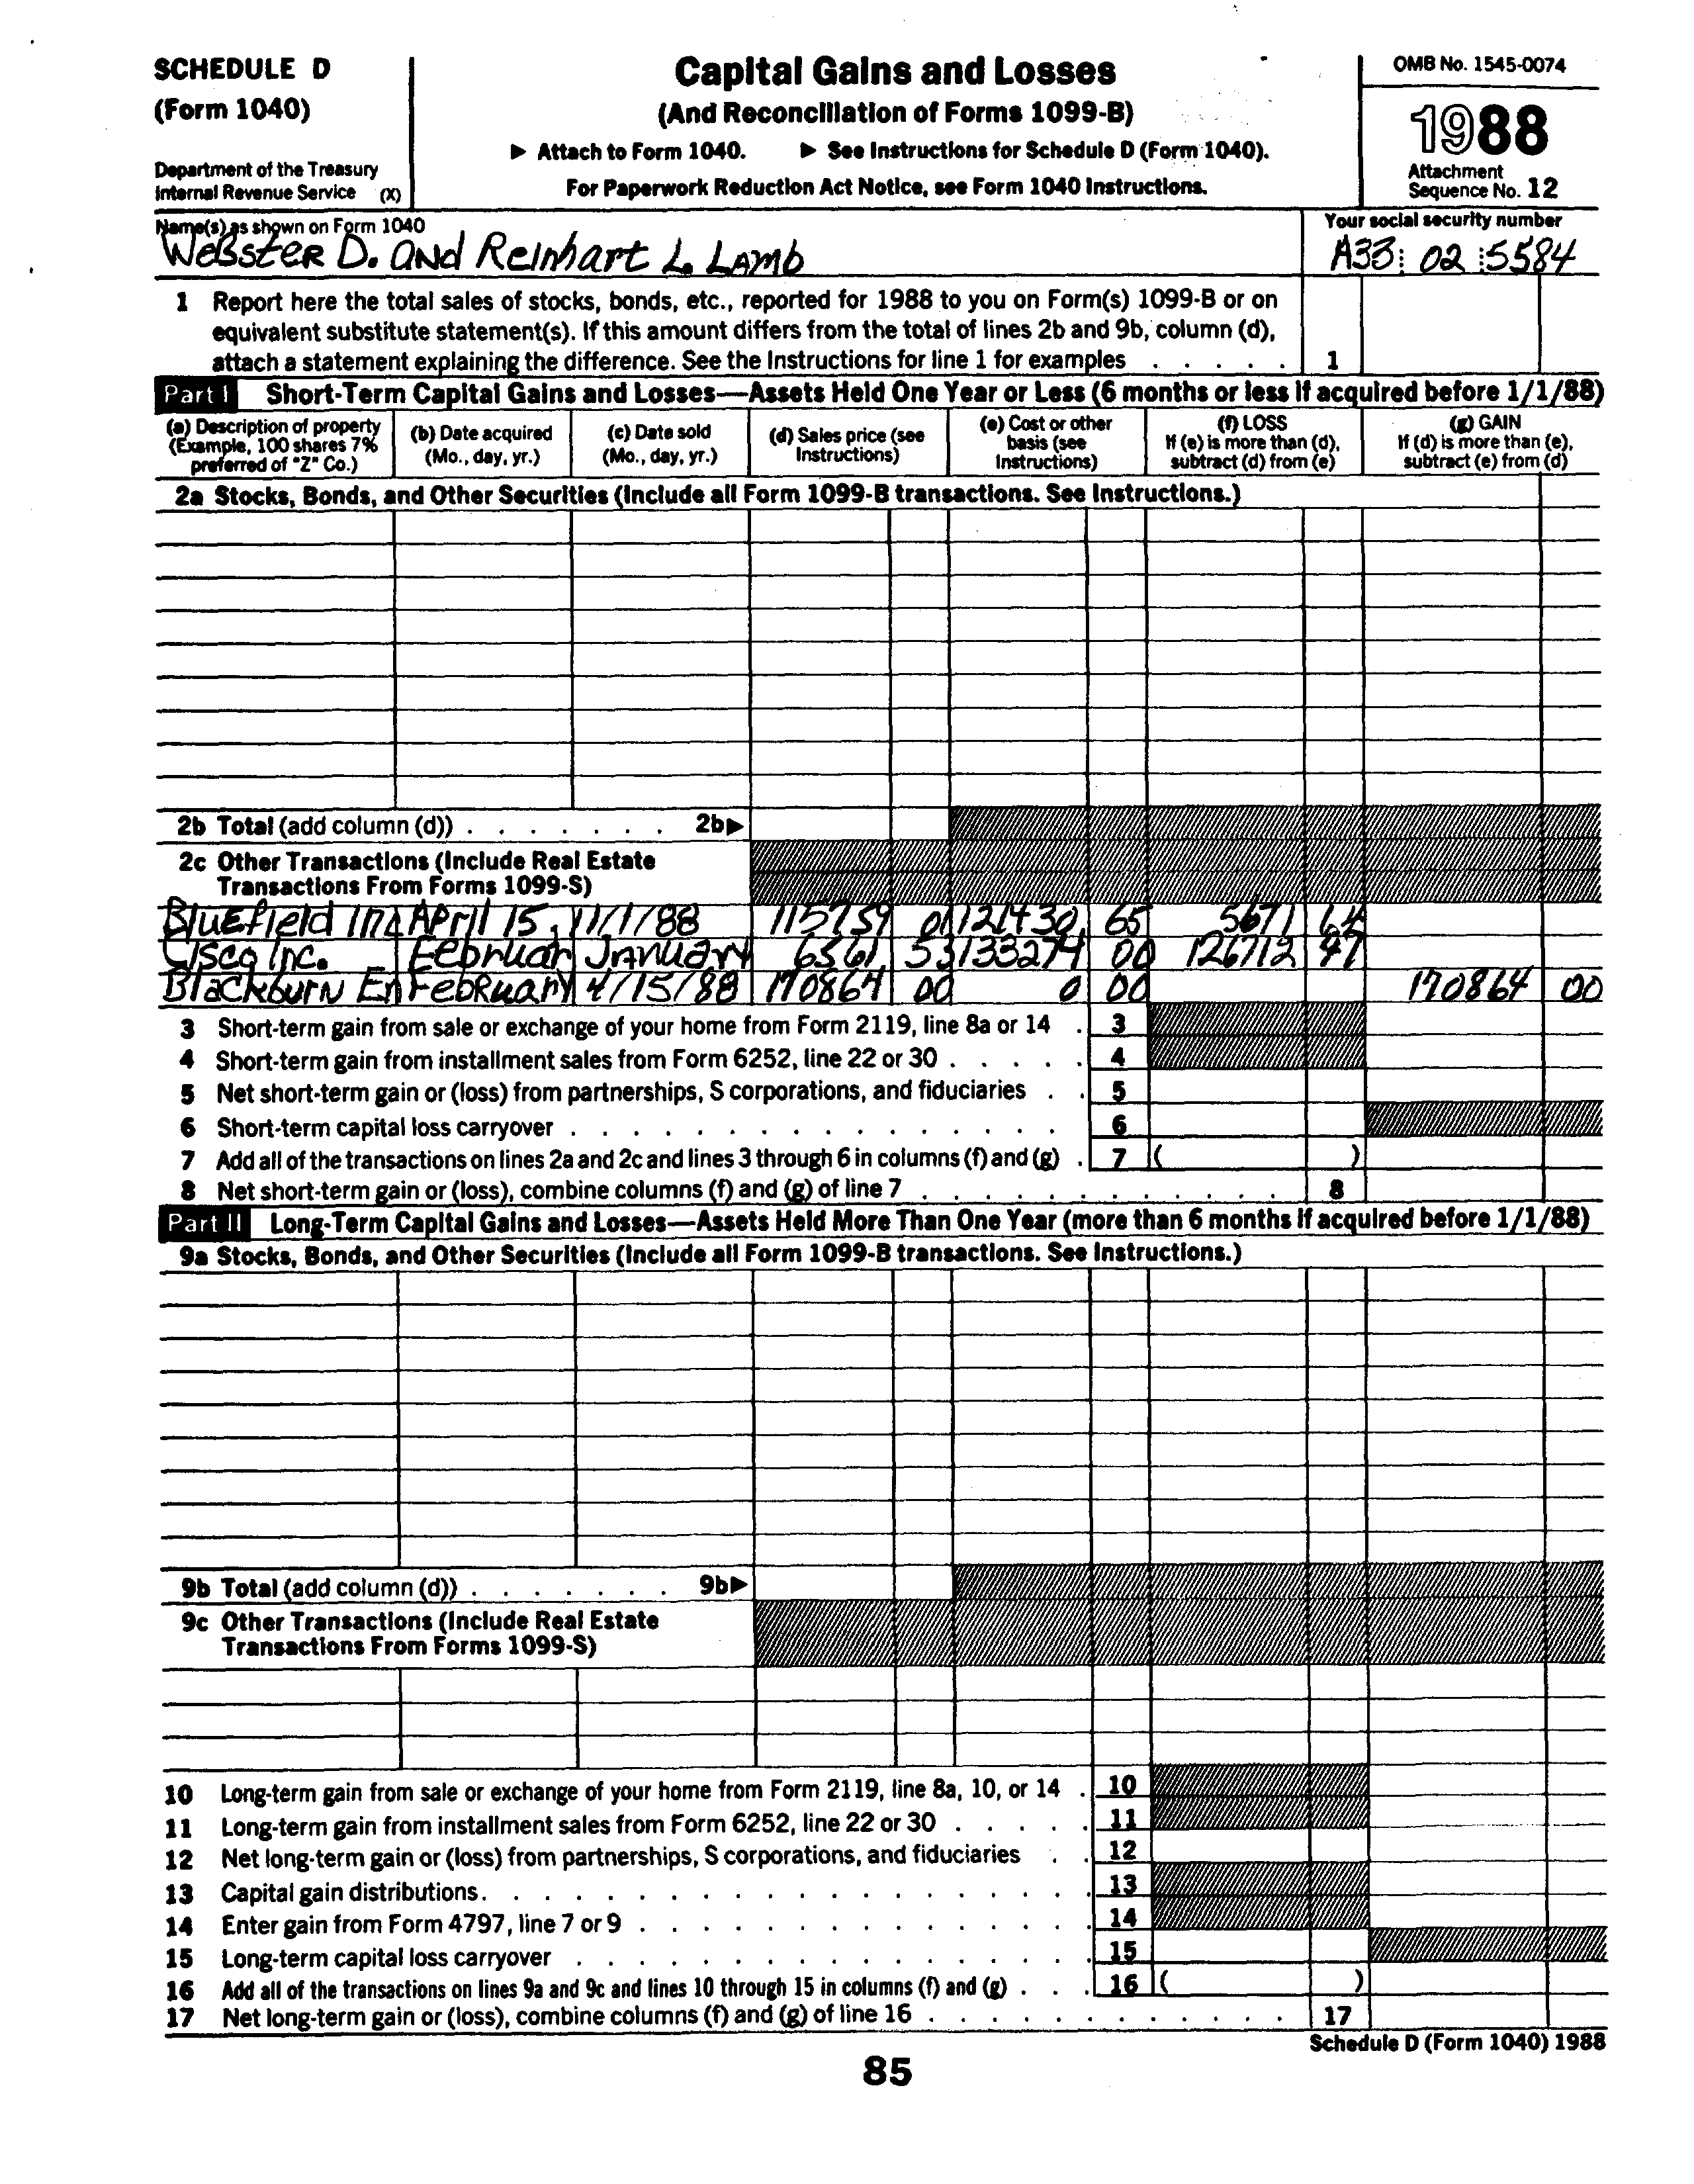 SCHEDULE D
(Form 1040)
Department of the Treasury
Internal Revenue Service (X)
Capital Gains and Losses
(And Reconciliation of Forms 1099-B)
▶ Attach to Form 1040. ▶ See Instructions for Schedule D (Form 1040).
For Paperwork Reduction Act Notice, see Form 1040 Instructions.
OMB No. 1545-0074
1988
Attachment
Sequence No. 12
Name(s) as shown on Form 1040
Webster D. and Reinhart L. Lamb
Your social security number
A33 02 5584
1 Report here the total sales of stocks, bonds, etc., reported for 1988 to you on Form(s) 1099-B or on
equivalent substitute statement(s). If this amount differs from the total of lines 2b and 9b, column (d),
attach a statement explaining the difference. See the Instructions for line 1 for examples . . . . . 1
Part I Short-Term Capital Gains and Losses—Assets Held One Year or Less (6 months or less if acquired before 1/1/88)
(a) Description of property
(Example, 100 shares 7%
preferred of "Z" Co.)
(b) Date acquired
(Mo., day, yr.)
(c) Date sold
(Mo., day, yr.)
(d) Sales price (see
Instructions)
(e) Cost or other
basis (see
Instructions)
(f) LOSS
If (e) is more than (d),
subtract (d) from (e)
(g) GAIN
If (d) is more than (e),
subtract (e) from (d)
2a Stocks, Bonds, and Other Securities (Include all Form 1099-B transactions. See Instructions.)
2b Total (add column (d)) . . . . . . . 2b▶
2c Other Transactions (Include Real Estate
Transactions From Forms 1099-S)
Bluefield Inc April 15, 11/1/88 115759 01 121430 65 5671 64
Cisco Inc. Februar January 6561 53 133274 00 126712 47
Blackburn En February 4/15/88 170864 00 0 00 170864 00
3 Short-term gain from sale or exchange of your home from Form 2119, line 8a or 14 . 3
4 Short-term gain from installment sales from Form 6252, line 22 or 30 . . . . . 4
5 Net short-term gain or (loss) from partnerships, S corporations, and fiduciaries . . 5
6 Short-term capital loss carryover . . . . . . . . . . . . . . . . 6
7 Add all of the transactions on lines 2a and 2c and lines 3 through 6 in columns (f) and (g) . 7 ( )
8 Net short-term gain or (loss), combine columns (f) and (g) of line 7 . . . . . . . . . . . 8
Part II Long-Term Capital Gains and Losses—Assets Held More Than One Year (more than 6 months if acquired before 1/1/88)
9a Stocks, Bonds, and Other Securities (Include all Form 1099-B transactions. See Instructions.)
9b Total (add column (d)) . . . . . . . 9b▶
9c Other Transactions (Include Real Estate
Transactions From Forms 1099-S)
10 Long-term gain from sale or exchange of your home from Form 2119, line 8a, 10, or 14 . 10
11 Long-term gain from installment sales from Form 6252, line 22 or 30 . . . . . 11
12 Net long-term gain or (loss) from partnerships, S corporations, and fiduciaries . . 12
13 Capital gain distributions . . . . . . . . . . . . . . . . . . . 13
14 Enter gain from Form 4797, line 7 or 9 . . . . . . . . . . . . . . 14
15 Long-term capital loss carryover . . . . . . . . . . . . . . . . 15
16 Add all of the transactions on lines 9a and 9c and lines 10 through 15 in columns (f) and (g) . . . 16 ( )
17 Net long-term gain or (loss), combine columns (f) and (g) of line 16 . . . . . . . . . . . 17
Schedule D (Form 1040) 1988
85